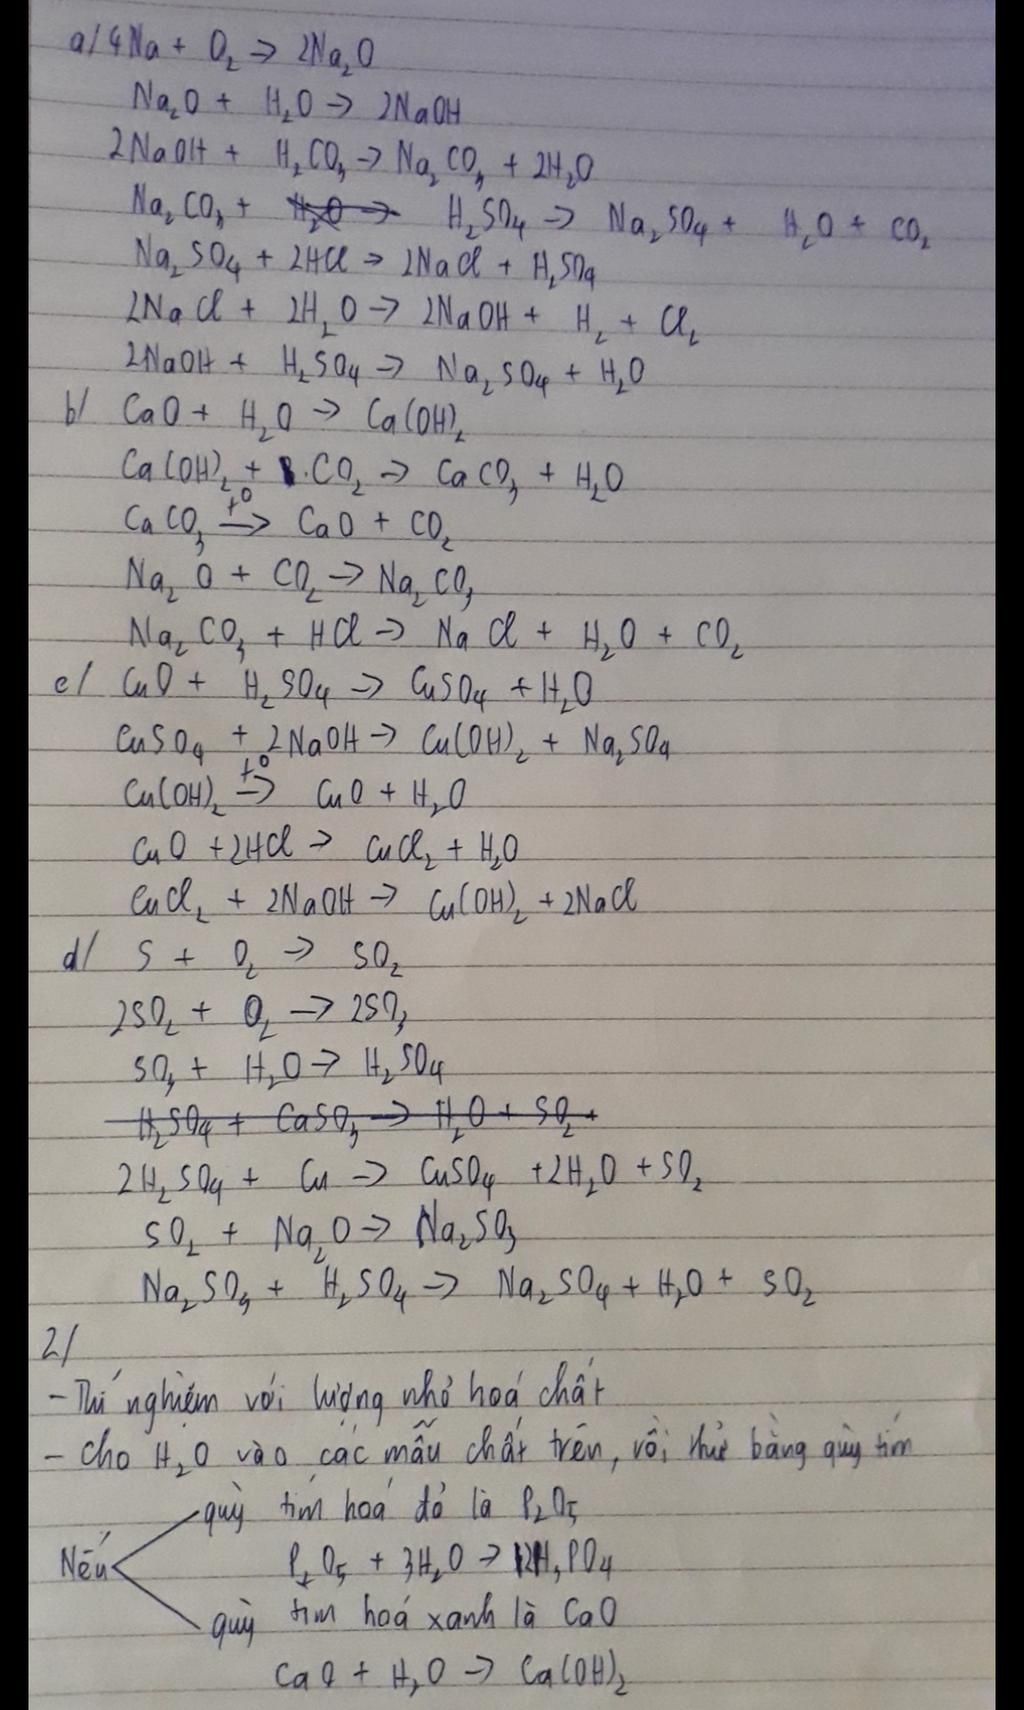 a/ 4Na + O₂ → 2Na₂O
Na₂O + H₂O → 2NaOH
2NaOH + H₂CO₃ → Na₂CO₃ + 2H₂O
Na₂CO₃ + H₂O → H₂SO₄ → Na₂SO₄ + H₂O + CO₂
Na₂SO₄ + 2HCl → 2NaCl + H₂SO₄
2NaCl + 2H₂O → 2NaOH + H₂ + Cl₂
2NaOH + H₂SO₄ → Na₂SO₄ + H₂O
b/ CaO + H₂O → Ca(OH)₂
Ca(OH)₂ + CO₂ → CaCO₃ + H₂O
CaCO₃ →t° CaO + CO₂
Na₂O + CO₂ → Na₂CO₃
Na₂CO₃ + HCl → NaCl + H₂O + CO₂
c/ CuO + H₂SO₄ → CuSO₄ + H₂O
CuSO₄ + 2NaOH → Cu(OH)₂ + Na₂SO₄
Cu(OH)₂ →t° CuO + H₂O
CuO + 2HCl → CuCl₂ + H₂O
CuCl₂ + 2NaOH → Cu(OH)₂ + 2NaCl
d/ S + O₂ → SO₂
2SO₂ + O₂ → 2SO₃
SO₃ + H₂O → H₂SO₄
H₂SO₄ + CaSO₃ → H₂O + SO₂ +
2H₂SO₄ + Cu → CuSO₄ + 2H₂O + SO₂
SO₂ + Na₂O → Na₂SO₃
Na₂SO₃ + H₂SO₄ → Na₂SO₄ + H₂O + SO₂
2/
- Thí nghiệm với lượng nhỏ hoá chất
- Cho H₂O vào các mẫu chất trên, rồi thử bằng quỳ tím
quỳ tím hoá đỏ là P₂O₅
Nếu P₂O₅ + 3H₂O → 2H₃PO₄
quỳ tím hoá xanh là CaO
CaO + H₂O → Ca(OH)₂